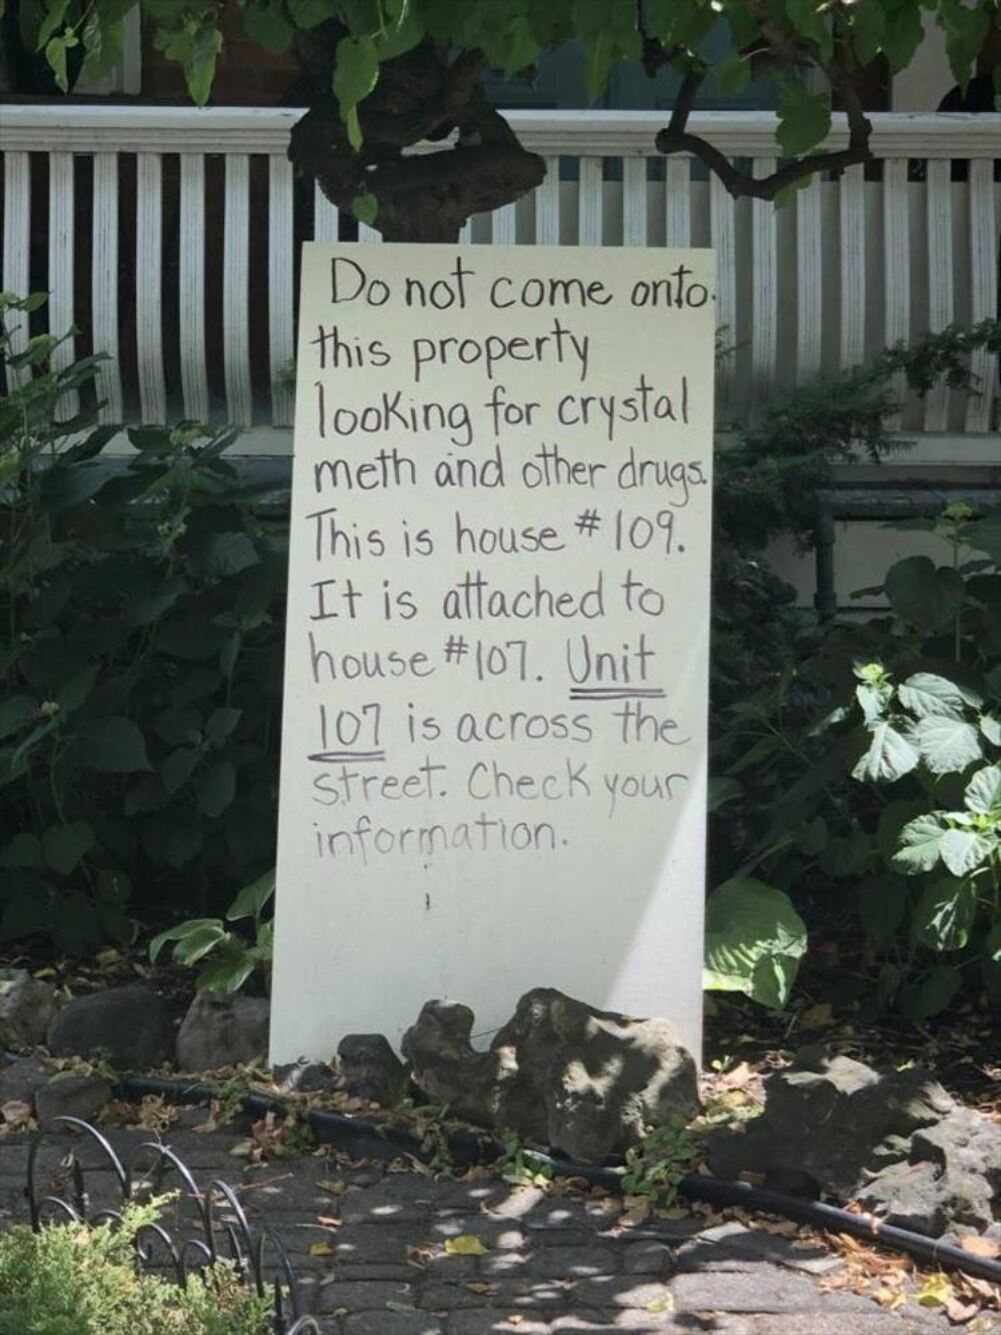 Do not come onto
this property
looking for crystal
meth and other drugs.
This is house #109.
It is attached to
house #107. Unit
107 is across the
street. Check your
information.